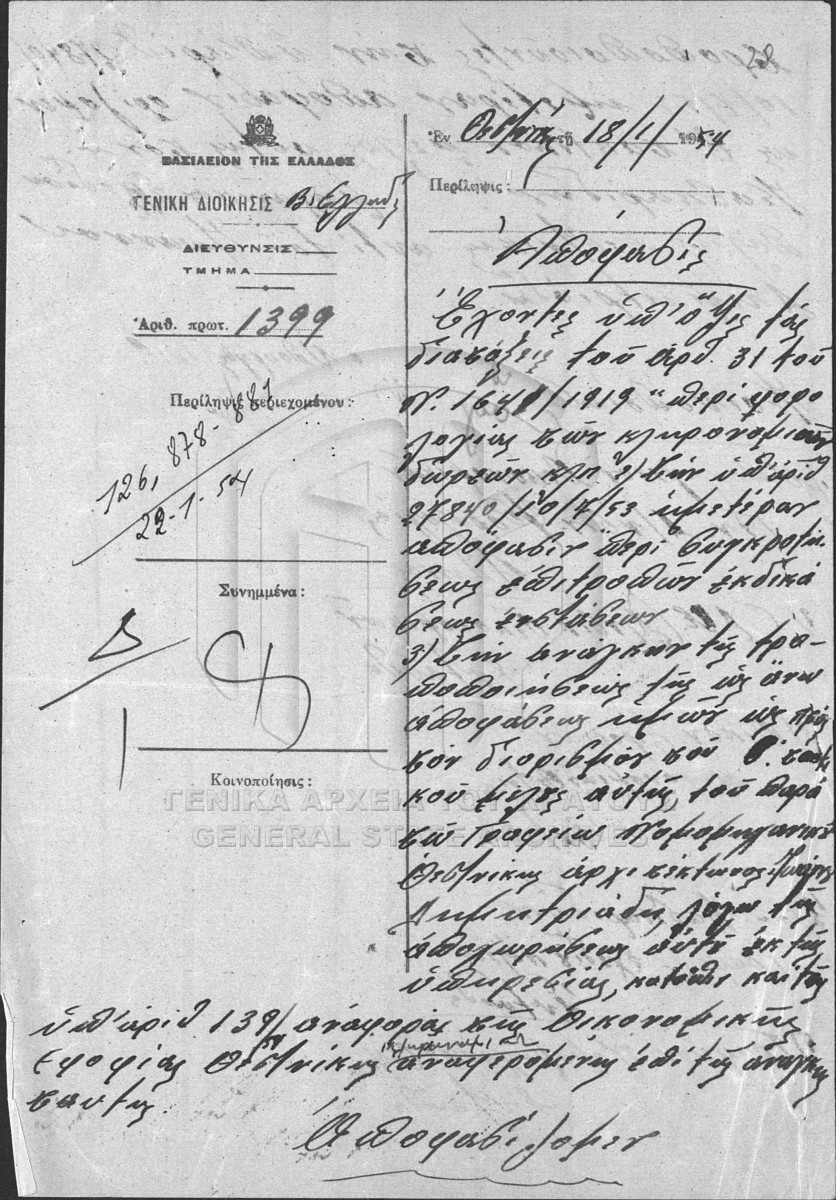 ΒΑΣΙΛΕΙΟΝ ΤΗΣ ΕΛΛΑΔΟΣ
ΓΕΝΙΚΗ ΔΙΟΙΚΗΣΙΣ Β. Ελλάδος
ΔΙΕΥΘΥΝΣΙΣ
ΤΜΗΜΑ
Ἀριθ. πρωτ. 1399
Περίληψις περιεχομένου:
126, 878-881
22-1-54
Συνημμένα:
Κοινοποίησις:
Ἐν Θεσ/νίκῃ τῇ 18/1/1954
Περίληψις:
Ἀπόφασις
Ἔχοντες ὑπ' ὄψει τάς
διατάξεις τοῦ ἀρθ. 31 τοῦ
Ν. 1641/1919 "περί φορο
λογίας τῶν κληρονομιῶν
δωρεῶν κλπ 2) Τήν ὑπ' ἀριθ
27840/10/7/53 ἡμετέραν
ἀπόφασιν περί συγκροτή
σεως ἐπιτροπῶν ἐκδικά
σεως ἐνστάσεων
3) Τήν ἀνάγκην τῆς τρο-
ποποιήσεως τῆς ὡς ἄνω
ἀποφάσεως ἡμῶν ὡς πρός
τόν διορισμόν τοῦ
μέλους αὐτῆς τοῦ παρά
τῷ Γραφείῳ Νομομηχανικοῦ
Θεσ/νίκης ἀρχιτέκτονος
Δημητριάδη λόγῳ τῆς
ἀποχωρήσεως αὐτοῦ ἐκ τῆς
ὑπηρεσίας, κατόπιν καί τῆς
ὑπ' ἀριθ 139/ ἀναφορᾶς τῆς Οἰκονομικῆς
Ἐφορίας Θεσ/νίκης ἀναφερομένης ἐπί τῆς ἀνάγκης
ταύτης.
Ἀποφασίζομεν
ΓΕΝΙΚΑ ΑΡΧΕΙΑ ΤΟΥ ΚΡΑΤΟΥΣ
GENERAL STATE ARCHIVES